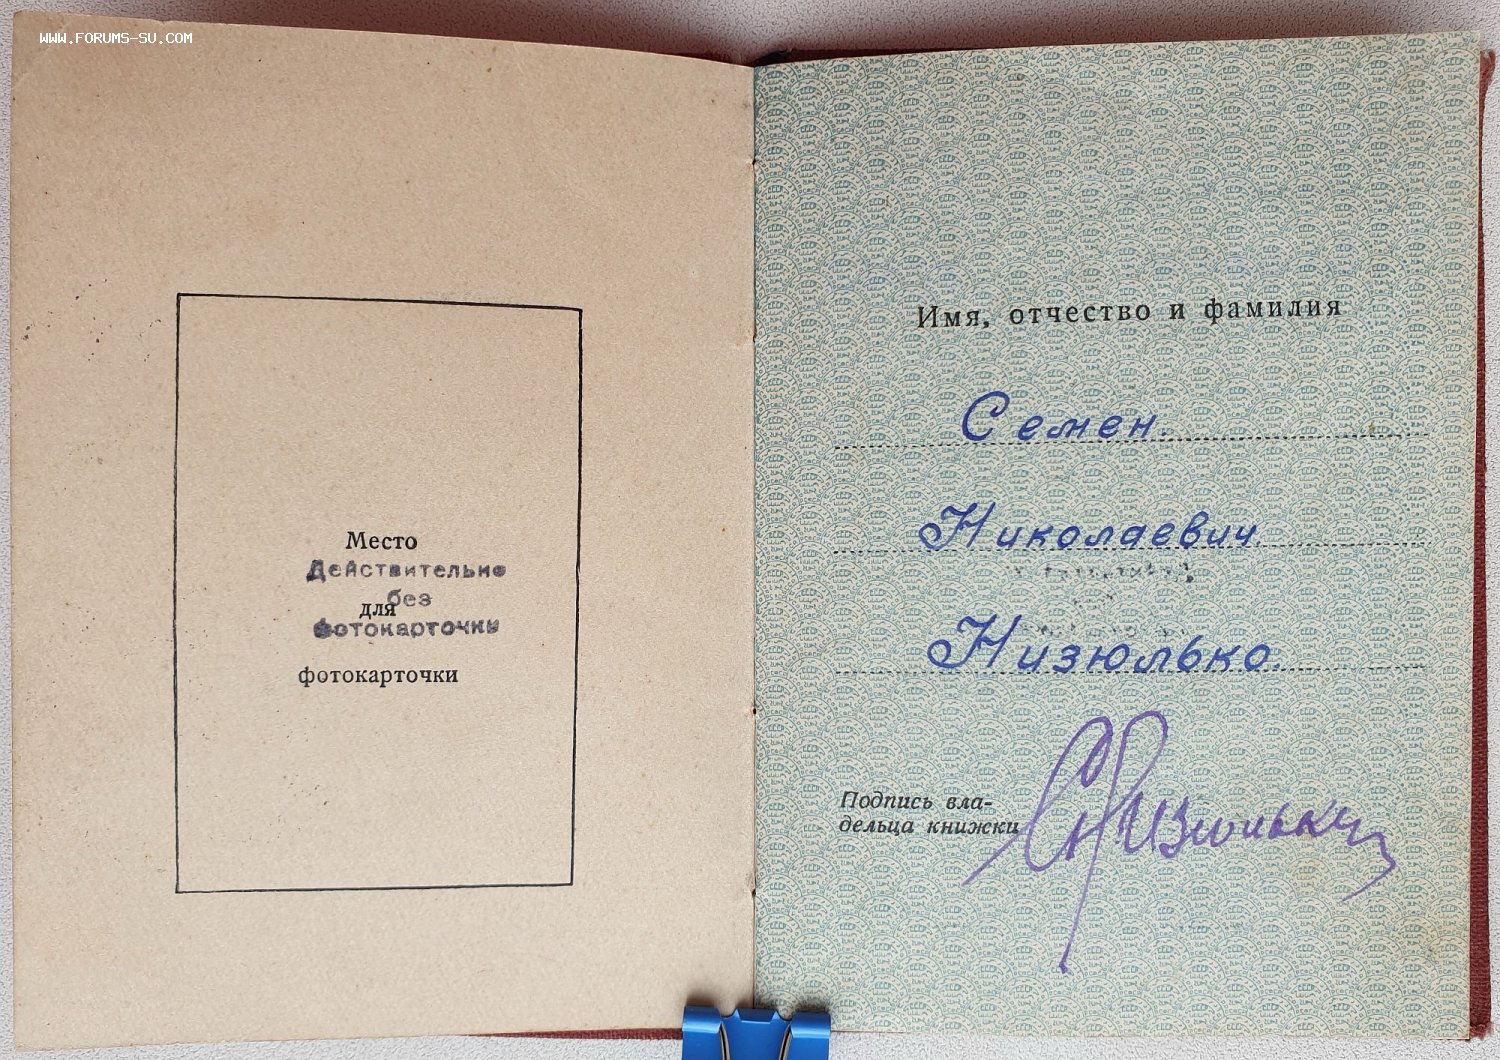 WWW.FORUMS-SU.COM
Место
Действительно
без
для
фотокарточки
фотокарточки
Имя, отчество и фамилия
Семен.
Николаевич
Низюлько.
Подпись вла-
дельца книжки